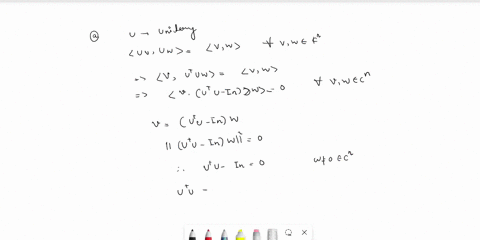 (a) U → Unitary
<Uv, Uw> = <v,w> ∀ v,w ∈ ℂⁿ
=> <v, U†Uw> = <v,w>
=> <v. (U†U-In)w> = 0 ∀ v,w ∈ ℂⁿ
v = (U†U-In) w
||(U†U-In)w||² = 0
∴ U†U - In = 0 w≠0 ∈ ℂⁿ
U†U -